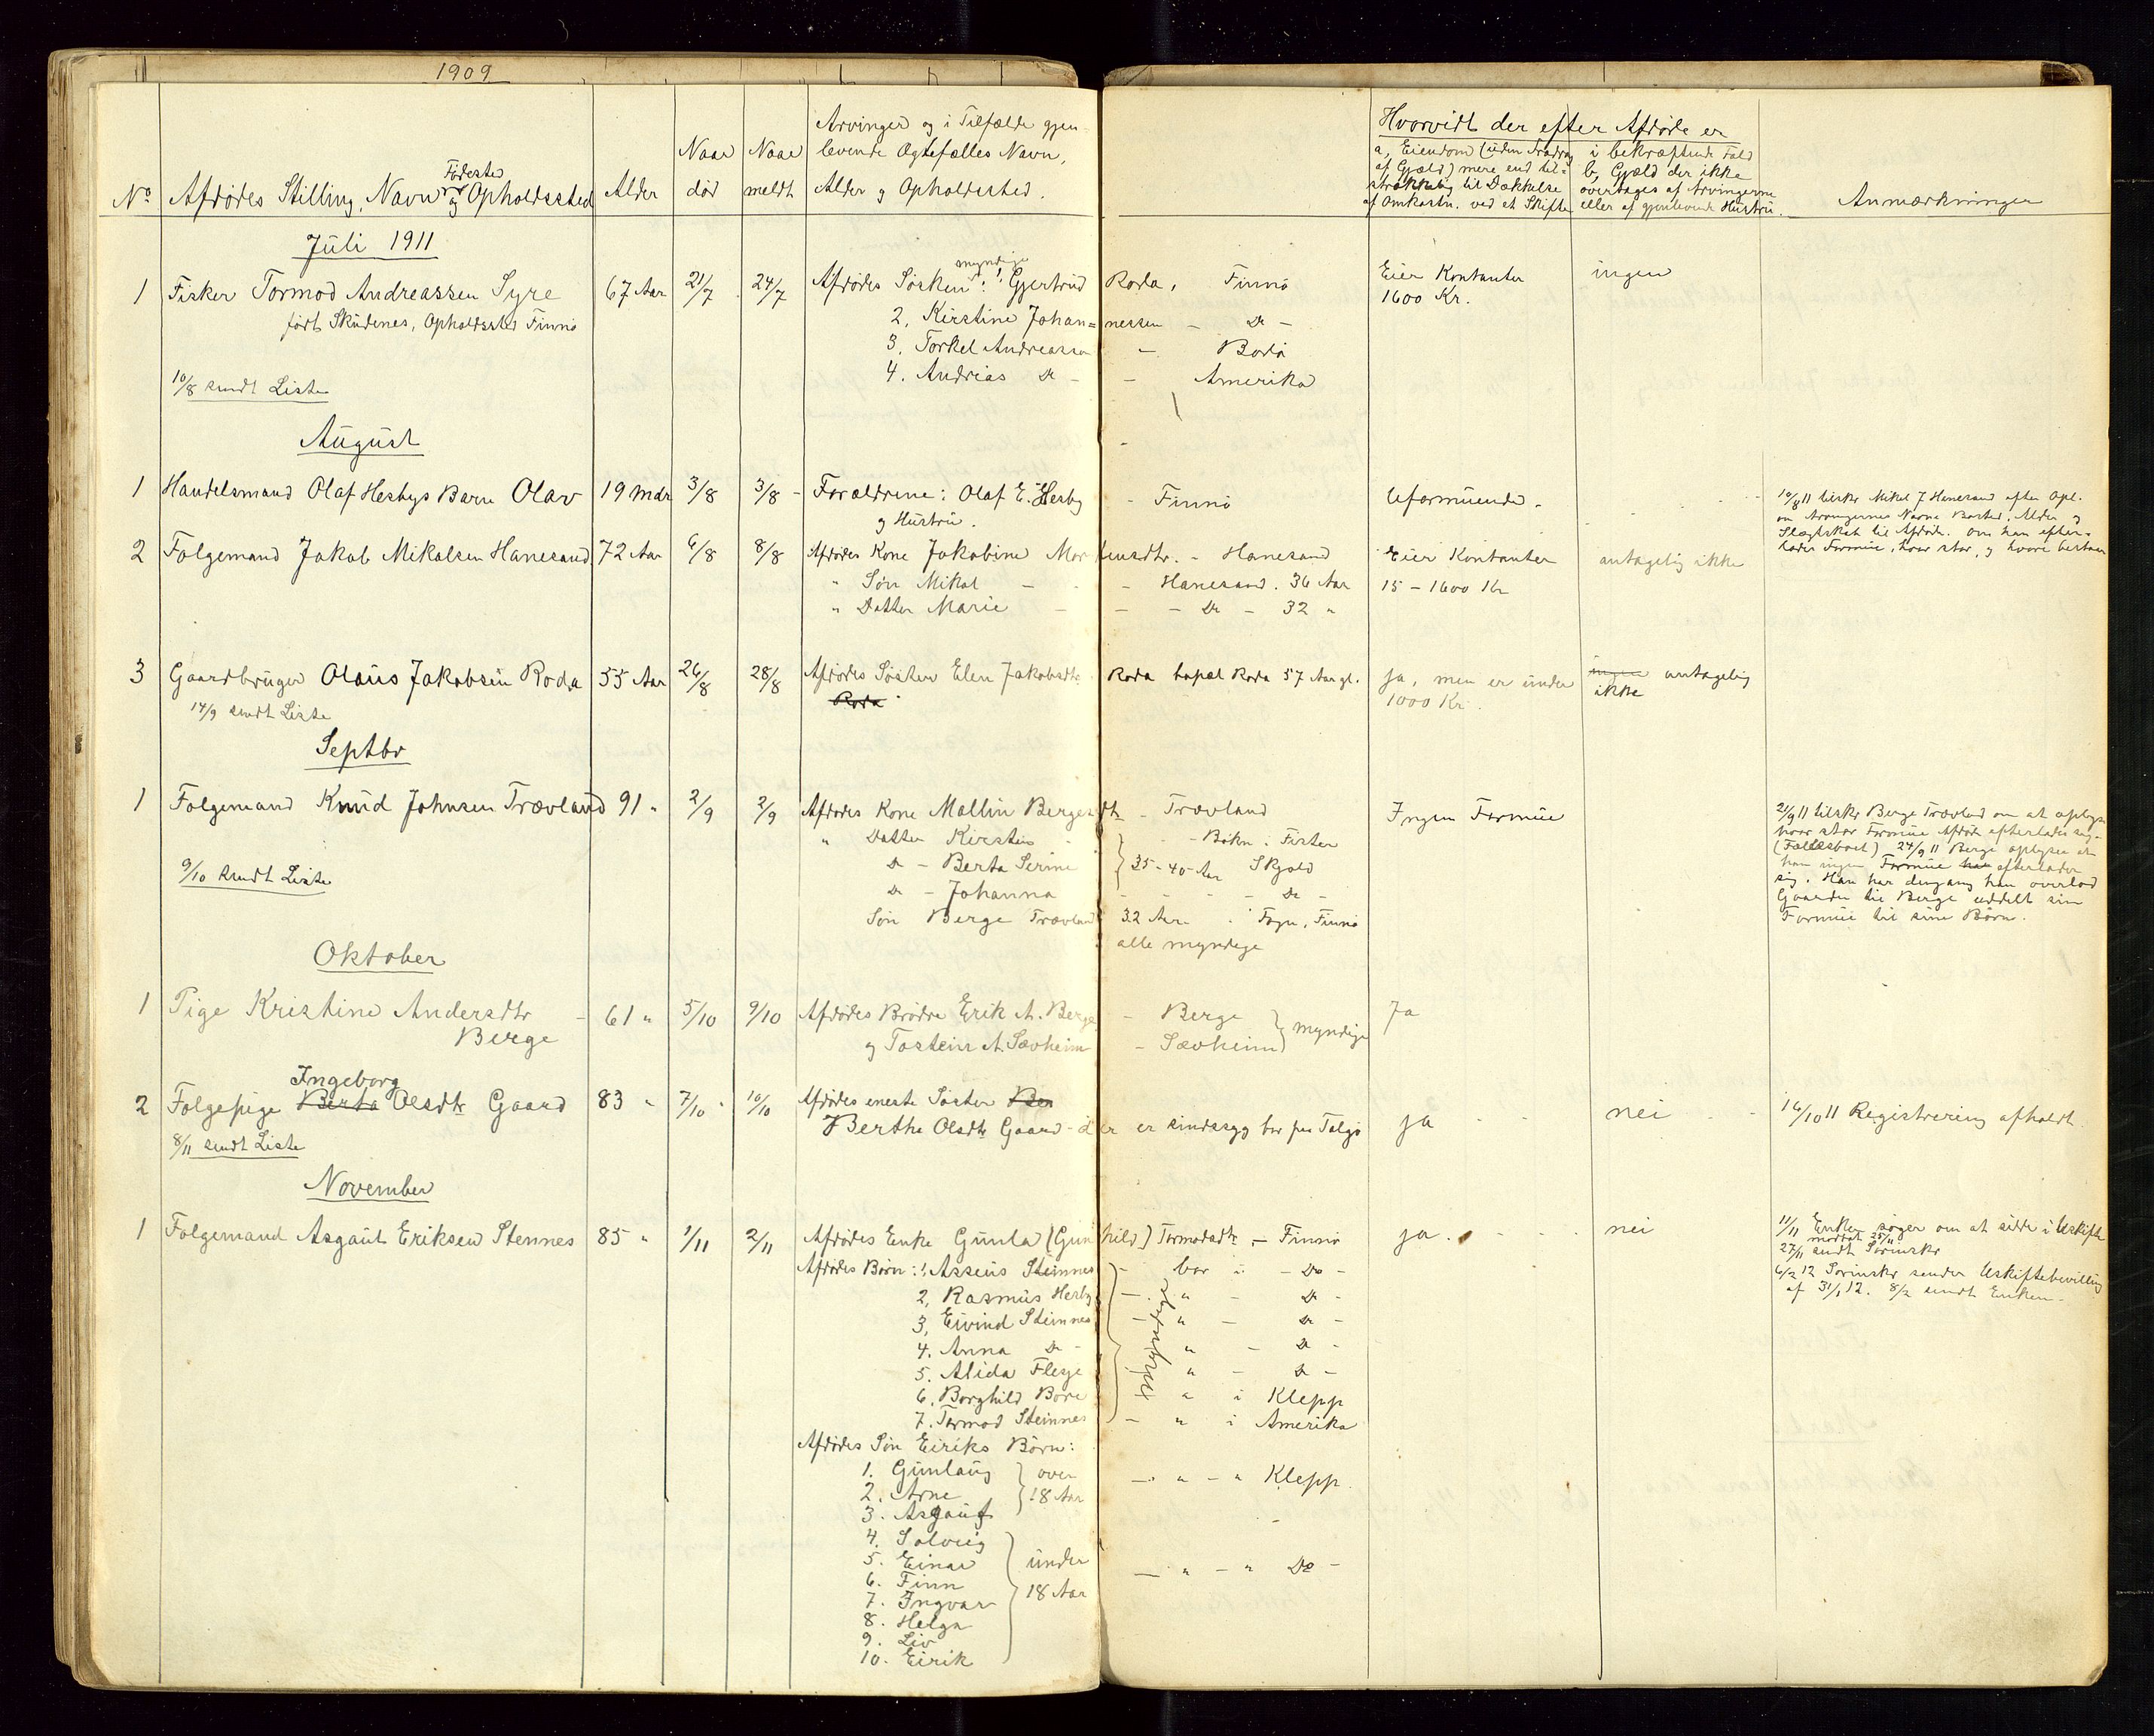 1909
No Afdødes Stilling, Navn Fødested og Opholdssted
Alder
Naar død
Naar meldt
Arvinger og i Tilfælde gjen-
levende Ægtefælles Navn,
Alder og Opholdssted.
Hvorvidt der efter Afdøde er
a, Eiendom (uden Fradrag
af Gjæld) mere end til-
strækkelig til Dækkelse
af Omkostn. ved et Skifte
i bekræftende Fald
b, Gjæld der ikke
overtages af Arvingerne
eller af gjenlevende Hustru.
Anmærkninger
Juli 1911
1 Fisker Tormod Andreassen Syre 67 Aar 21/7 24/7 Afdødes Søsken: myndige 1 Gjertrud Roda, Finnø Eier Kontanter ingen
født Skudenes, Opholdssted Finnø 1600 Kr.
2, Kirstine Johan=nessen - Do -
3, Torkel Andreassen - Bodø
4. Andrias Do - - Amerika
10/8 sendt Liste
August
1 Handelsmand Olaf Hesbys Barn Olav 19 Mdr 3/8 3/8 - Forældrene: Olaf E. Hesby - Finnø Uformuende.
og Hustru.
2 Folgemand Jakob Mikalsen Hanesand 72 Aar 6/8 8/8 Afdødes Kone Jakobine Mortensdtr. - Hanesand Eier Kontanter antagelig ikke
" Søn Mikal - - Hanesand. 36 Aar 15 - 1600 Kr
" Datter Marie - - - Do - 32 "
10/8 11 tilskr Mikal J Hanesand efter Opl.
om Arvingernes Navne Bosted, Alder og
Slægtskab til Afdøde. om han efter-
lader Formue, hvor stor, og hvori bestaar
3 Gaardbruger Olaus Jakobsen Roda 55 Aar 26/8 28/8 Afdødes Søster Elen Jakobsdtr Roda bopæl Roda 57 Aar gl. ja, men er under ingen antagelig
14/9 sendt Liste Roda 1000 Kr. ikke
Septbr
1 Folgemand Knud Johnsen Trævland 91 " 2/9 2/9 Afdødes Kone Mallin Bergesdtr - Trævland Ingen Formue
" Datter Kirsten - - Bokn i Fister
Do - Berta Serine 35-40 Aar Skjold
9/10 sendt Liste
Do - Johanna - - - Do -
Søn Berge Trævland 32 Aar i Fogn, Finnø
alle myndige
21/9 11 tilskr Berge Trævland om at oplyse
hvor stor Formue Afdøde efterlader sig -
(Fællesboet) 24/9 11 Berge oplyser at
han ingen Formue har efterlader
sig. Han har dengang han overlod
Gaarden til Berge uddelt sin
Formue til sine Børn.
Oktober
1 Pige Kristine Andersdtr - 61 " 5/10 9/10 Afdødes Brødre Erik A. Berge - Berge myndige Ja
Berge og Tostein A. Sævheim - Sævheim
2 Folgepige Berta Ingeborg Olsdtr Gaard 83 " 7/10 10/10 Afdødes eneste Søster Ber
Berthe Olsdtr Gaard - der er sindssyg bor paa Talgø ja - - nei - - 16/10 11 Registrering afholdt.
8/11 sendt Liste
November
1 Folgemand Asgaut Eriksen Stennes 85 " 1/11 2/11 Afdødes Enke Gunla (Gunhild) Tormodsdtr - Finnø ja. - - nei
Afdødes Børn: 1, Asseus Steinnes - bor i - Do -
2, Rasmus Hesby - " - Do -
3, Eivind Steinnes - " - Do -
4. Anna Do - " - Do -
5. Alida Flesje " - Do -
6. Borghild Bore " i Klepp
7. Tormod Steinnes - " i Amerika
myndige
11/11 Enken søger om at sidde i Uskifte
modtat 25/11
27/11 sendt Sorinskr
6/2 12 Sorinskr sender Uskiftebevilling
af 31/1 12. 8/2 sendt Enken -
Afdødes Søn Eiriks Børn:
1. Gunlaug
2. Arne
3. Asgaut
over 18 Aar - " - " Klepp.
4. Solveig
5. Einar
6. Finn
7. Ingvar
8. Helga
9. Liv
10. Eirik
under 18 Aar - " - " Do -